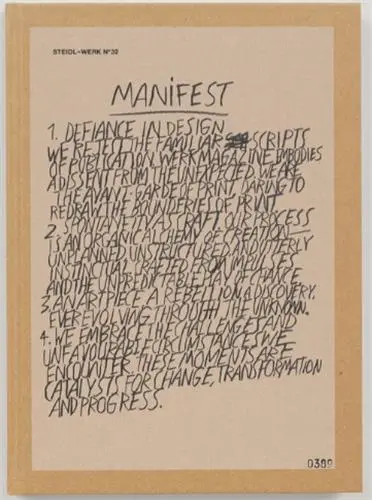 STEIDL-WERK Nº32
MANIFEST
1. DEFIANCE IN DESIGN
WE REJECT THE FAMILIAR SCRIPTS
OF PUBLICATION. WERKMAGAZINE EMBODIES
A DISSENT FROM THE UNEXPECTED. WE ARE
THE AVANT GARDE OF PRINT, DARING TO
REDRAW THE BOUNDERIES OF PRINT
2. SPONTANEITY IS CRAFT OUR PROCESS
IS AN ORGANIC ALCHEMY OF CREATION—
UNPLANNED, UNSTRUCTURED AND UTTERLY
INSTINCTUAL. CRAFTED FROM IMPULSES
AND THE UNPREDICTABLE DANCE OF CHANCE
3. AN ART PIECE, A REBELLION, A DISCOVERY.
EVER EVOLVING THROUGH THE UNKNOWN.
4. WE EMBRACE THE CHALLENGES AND
UNFAVOURABLE CIRCUMSTANCES WE
ENCOUNTER. THESE MOMENTS ARE
CATALYSTS FOR CHANGE, TRANSFORMATION
AND PROGRESS.
0389